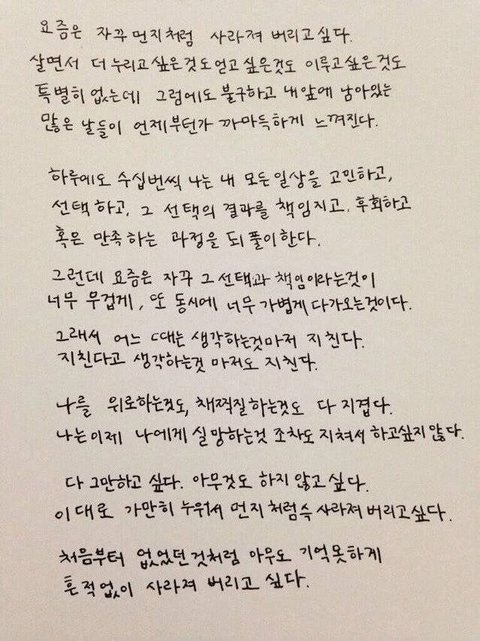 요즘은 자꾸 먼지처럼 사라져 버리고 싶다.
살면서 더 누리고 싶은것도 얻고 싶은것도 이루고 싶은것도
특별히 없는데 그럼에도 불구하고 내 앞에 남아있는
많은 날들이 언제부턴가 까마득하게 느껴진다.
하루에도 수십번씩 나는 내 모든 일상을 고민하고,
선택하고, 그 선택의 결과를 책임지고, 후회하고
혹은 만족하는 과정을 되풀이한다.
그런데 요즘은 자꾸 그 선택과 책임이라는것이
너무 무겁게, 또 동시에 너무 가볍게 다가오는것이다.
그래서 어느 때는 생각하는것마저 지친다.
지친다고 생각하는것 마저도 지친다.
나를 위로하는것도, 채찍질하는것도 다 지겹다.
나는이제 나에게 실망하는것 조차도 지쳐서 하고싶지 않다.
다 그만하고 싶다. 아무것도 하지 않고 싶다.
이대로 가만히 누워서 먼지처럼 슥 사라져 버리고 싶다.
처음부터 없었던것처럼 아무도 기억못하게
흔적없이 사라져 버리고 싶다.